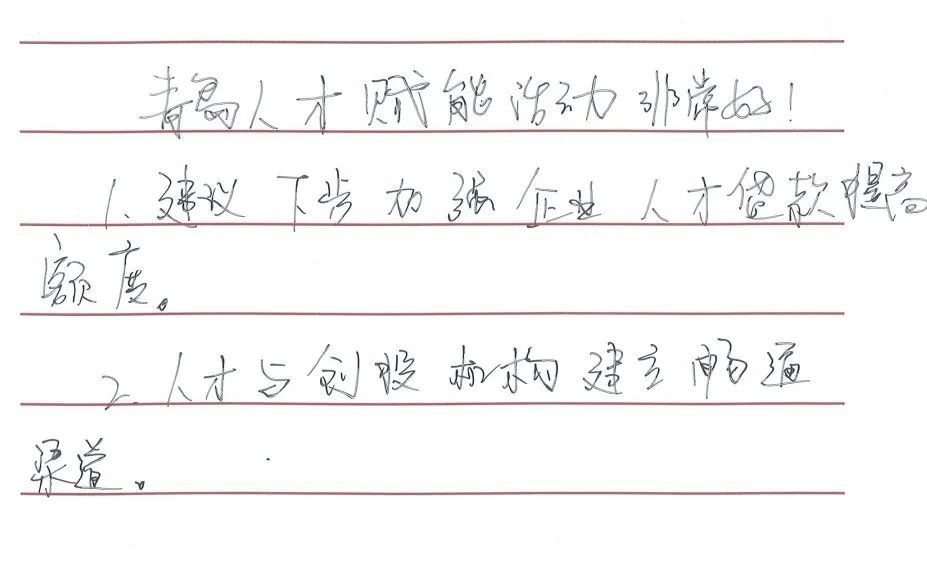 青岛人才赋能活动非常好!
1. 建议下步加强企业人才贷款提高
额度。
2. 人才与创投机构建立畅通
渠道。